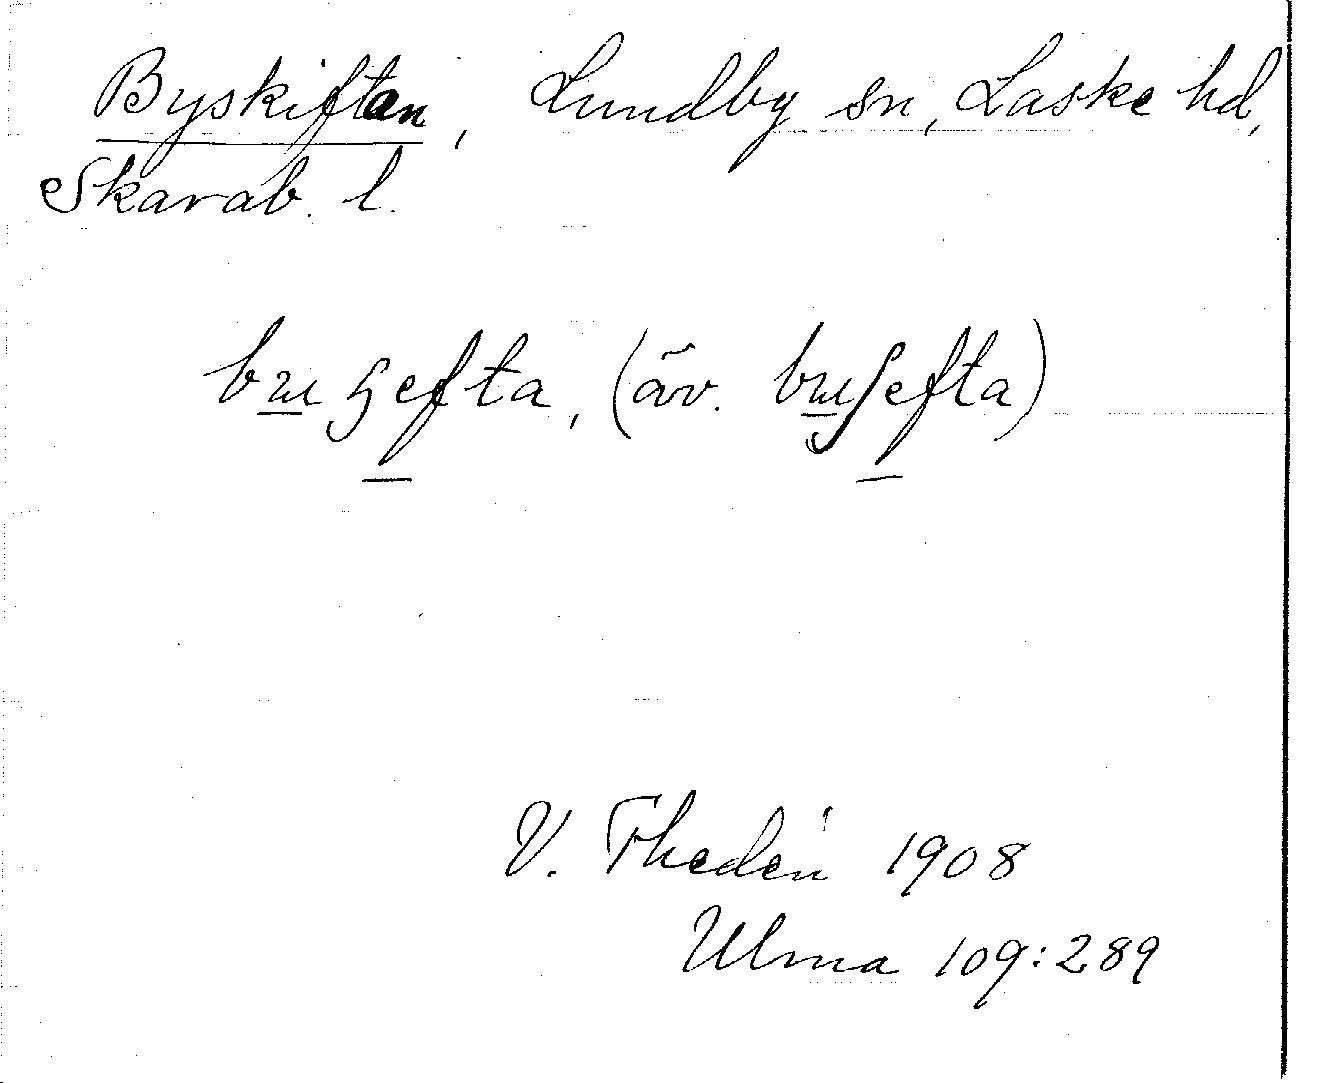 Byskiftan, Lundby sn, Laske hd,
Skarab. l.
bɯɧefta, (äv. bɯʃefta)
V. Thedén 1908
Ulma 109:289